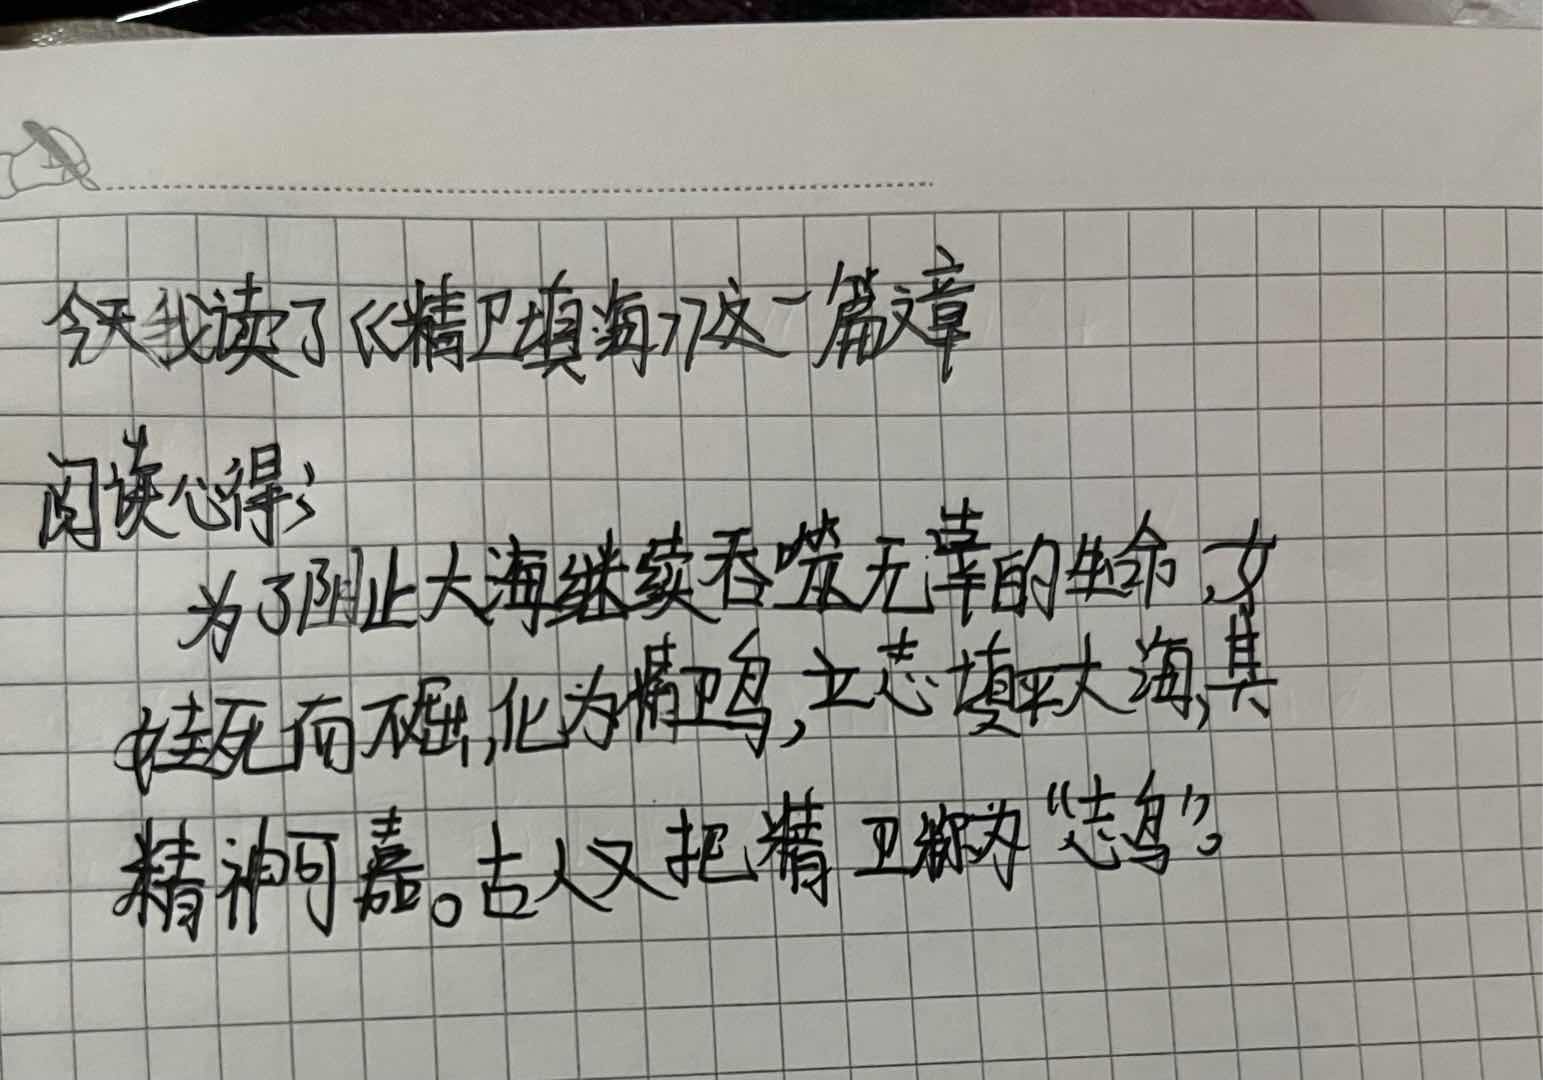 今天我读了《精卫填海》这一篇文章
阅读心得:
为了阻止大海继续吞噬无辜的生命,女
娃死而不屈,化为精卫鸟,立志填平大海,其
精神可嘉。古人又把精卫称为“志鸟”。